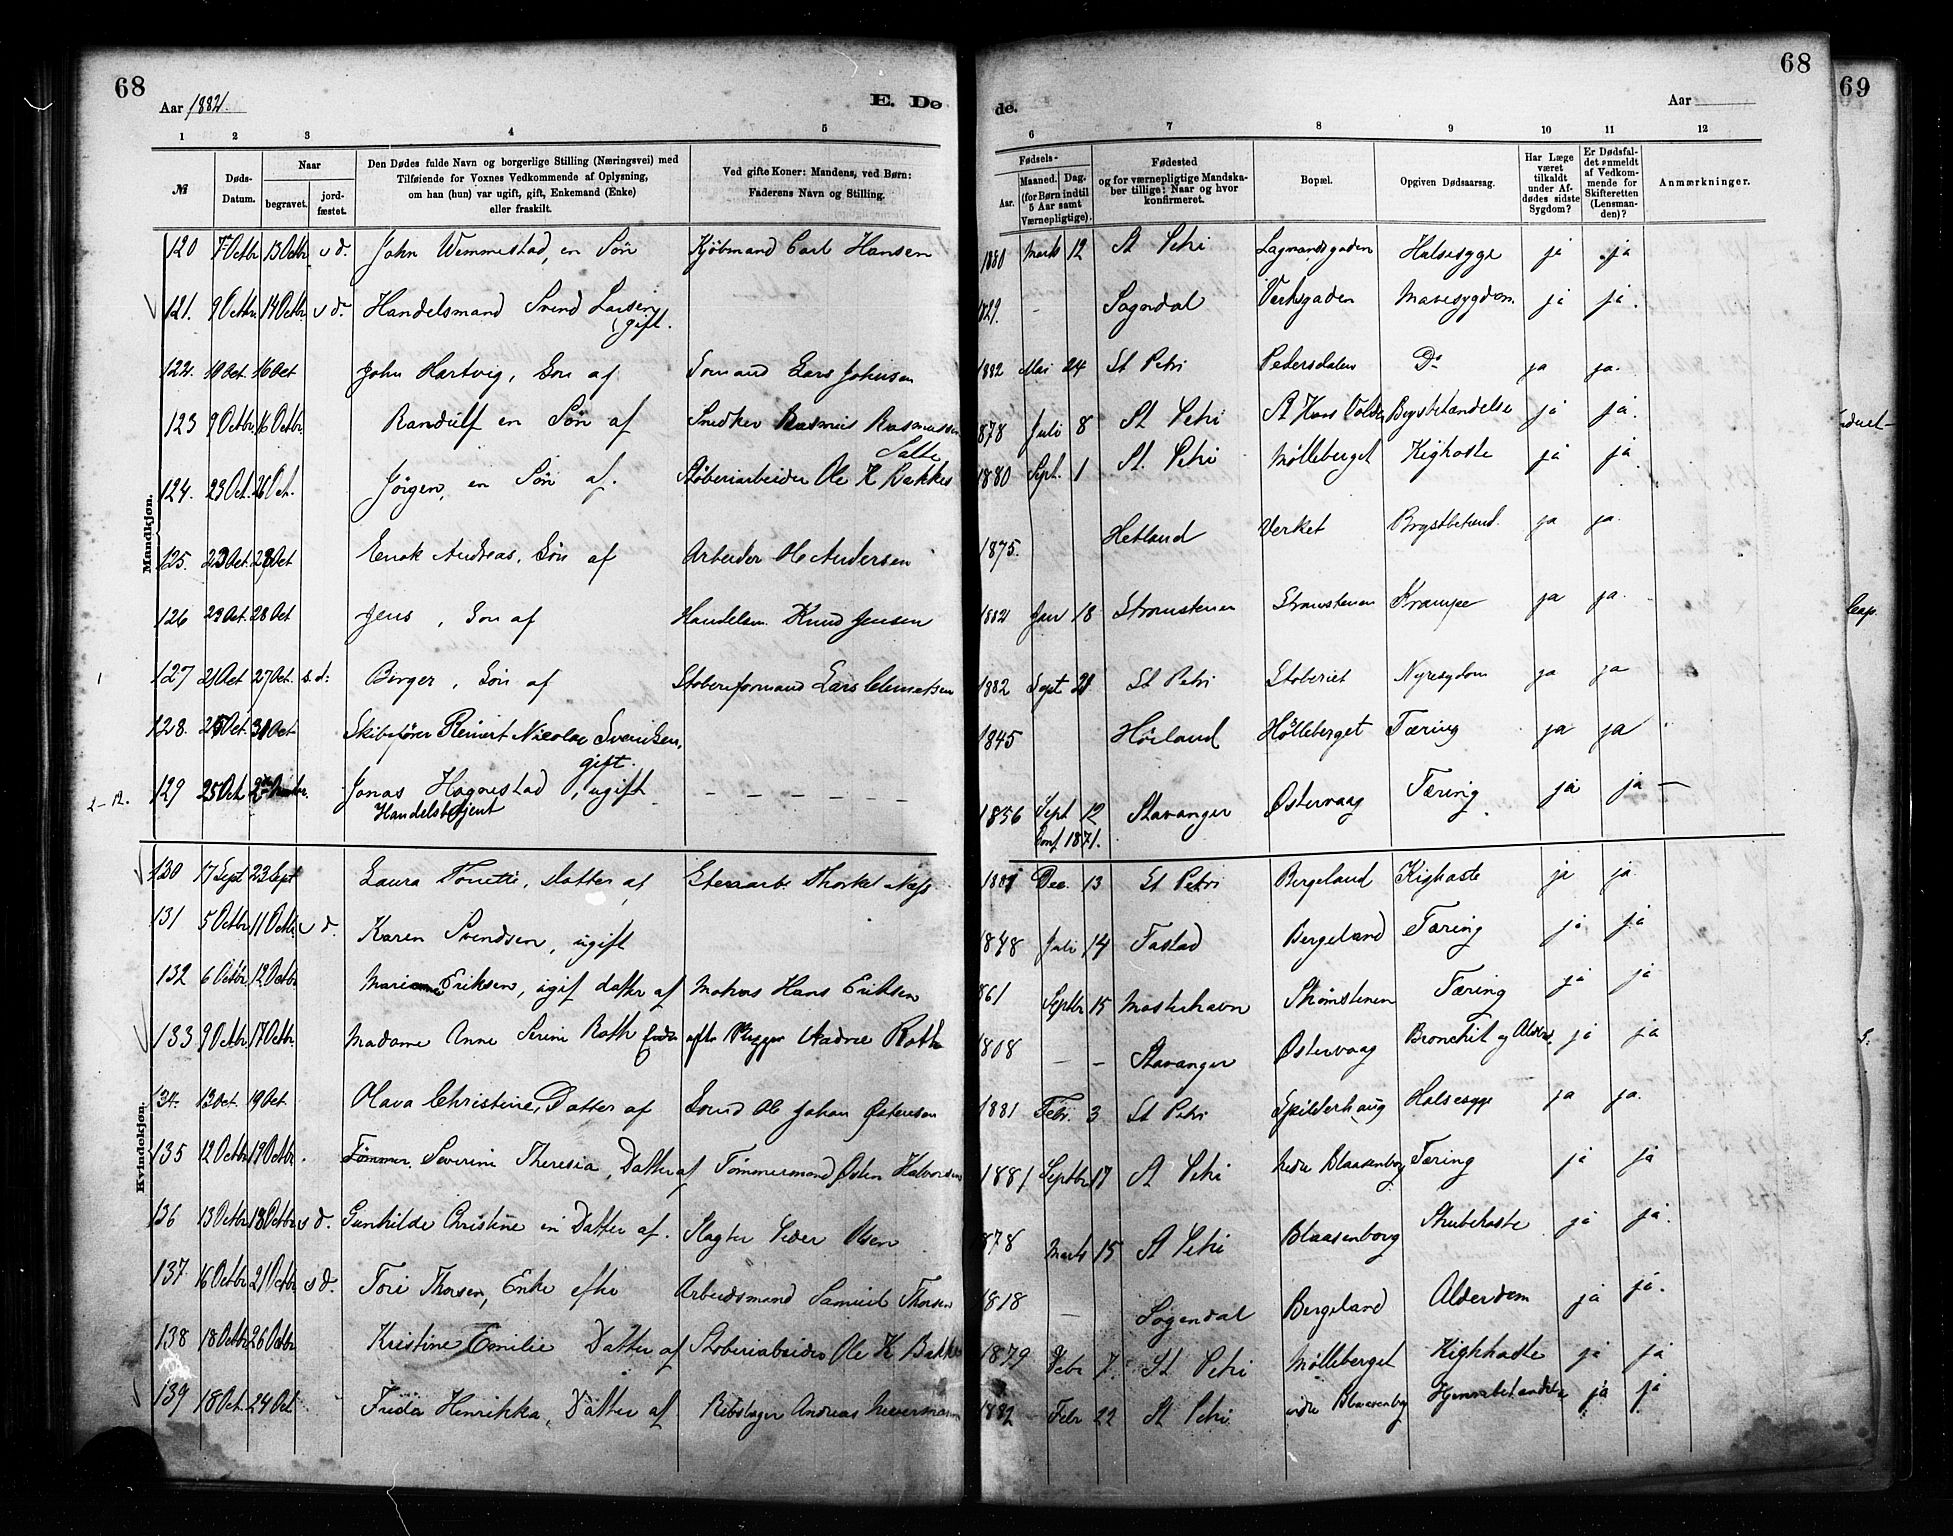 68
Aar 1882.
E. Dø
de.
Aar
68
69
1 2 3 4 5 6 7 8 9 10 11 12
№
Døds-Datum.
Naar
begravet.
jord-fæstet.
Den Dødes fulde Navn og borgerlige Stilling (Næringsvei) med
Tilføiende for Voxnes Vedkommende af Oplysning,
om han (hun) var ugift, gift, Enkemand (Enke)
eller fraskilt.
Ved gifte Koner: Mandens, ved Børn:
Faderens Navn og Stilling.
Fødsels-
Aar.
Maaned. Dag.
(for Børn indtil
5 Aar samt
Værnepligtige).
Fødested
og for værnepligtige Mandska-
ber tillige: Naar og hvor
konfirmeret.
Bopæl.
Opgiven Dødsaarsag.
Har Læge
været
tilkaldt
under Af-
dødes sidste
Sygdom?
Er Dødsfal-
det anmeldt
af Vedkom-
mende for
Skifteretten
(Lensman-
den)?
Anmærkninger.
Mandkjøn.
120 7 Octbr 13 Octbr s d. John Wemmestad, en Søn Kjøbmand Carl Hansen 1880 Marts 12 St Petri Lagmandsgaden Halssyge ja ja
121. 9 Octbr. 14 Octbr. s d. Handelsmand Svend Larsen, 1829. – Sogndal Verksgaden Mavesygdom ja ja.
gift.
122. 10 Oct. 16 Oct John Hartvig, Søn af Lars Johnsen 1882 Mai 24 St Petri Pedersdalen Do ja ja.
123 9 Octbr. 16 Octbr. Randulf en Søn af Snedker Rasmus Rasmussen 1878 Juli 8 St Petri St Hans Volden Brystbetændelse ja ja.
Salte
124. 23 Oct. 26 Oct. Jörgen, en Søn af. Støberiarbeider Ole K Bakke 1880 Sept. 1 St. Petri Mølleberget Kighoste ja ja
125. 23 Oct. 28 Oct Enok Andreas, Søn af Arbeider Ole Andersen 1875. Hetland Verket Brystbetænd. ja ja.
126 23 Oct. 28 Oct Jens, Søn af Handelsm. Knud Jensen 1882 Jan 18 Stromstenen Stromstenen Krampe ja ja.
127 21 Oct 27 Oct. s. d: Birger, Søn af Støberiformand Lars 1882 Sept St Petri Støberiet Nyresygdom ja ja
128. 25 Oct. 31 Oct Skibsfører Reinert Nicolai Svendsen, 1845 Mølleberget Tæring ja ja
gift.
2 – 12. 129 25 Oct. Jonas Hognestad, ugift – – – – – – 1856 Sept 12 Stavanger Østervaag Tæring. ja ja –
Handelsbetjent Conf 1871.
Kvindekjøn.
130 17 Sept 23 Sept Laura Tonette, Datter af Thorkel Næss Dec. 13 St Petri Bergeland Kighoste ja ja.
131 5 Octbr. 11 Octbr. s d. Karen Svendsen, ugift 1848 Juli 14 Tastad Bergeland Tæring ja ja
132 6 Octbr. 12 Octbr. Eriksen, ugif datter af Matros Hans Eriksen 861 Septbr 15 Mosterhavn Strømstenen Tæring ja ja
133 9 Octbr. 17 Octbr. Madame Anne Serine Roth Enke efter Andreas Roth 1808 – – Stavanger Østervaag Bronchit og Alderd. ja ja
134. 13 Oct. 19 Oct. Olava Christine, Datter af Ole Johan Østensen 1881 Febr. 3 St Petri Spilderhaug Halssyge ja ja.
135 12 Octbr 19 Octbr. Tømmer. Severine Theresia, Datter af Tømmermand Østen Halvorsen 1881 Septbr 17 St Petri nedre Blaasenborg Tæring ja ja
136 13 Octbr 18 Octbr s d. Gunhilde Christine en Datter af. Slagter Peder Olsen 878 Marts 15 St Petri Blaasenborg Strubehoste ja ja.
137 16 Octbr 21 Octbr s d. Tori Thorsen, Enke efter Arbeidsmand Samuel Thorsen 1818 – Sogendal Bergeland Alderdom ja ja.
138 18 Octbr 26 Octbr Kristine Emilie Datter af Støberiarbeider Ole K Bakke 1879 Febr 7. St Petri Mølleberget Kighhoste ja ja
139 18 Oct. 24 Oct. Frida Henrikka, Datter af Rebslager Andreas 1882 Febr 22 St Petri Blaasenborg Hjernebetændelse ja ja